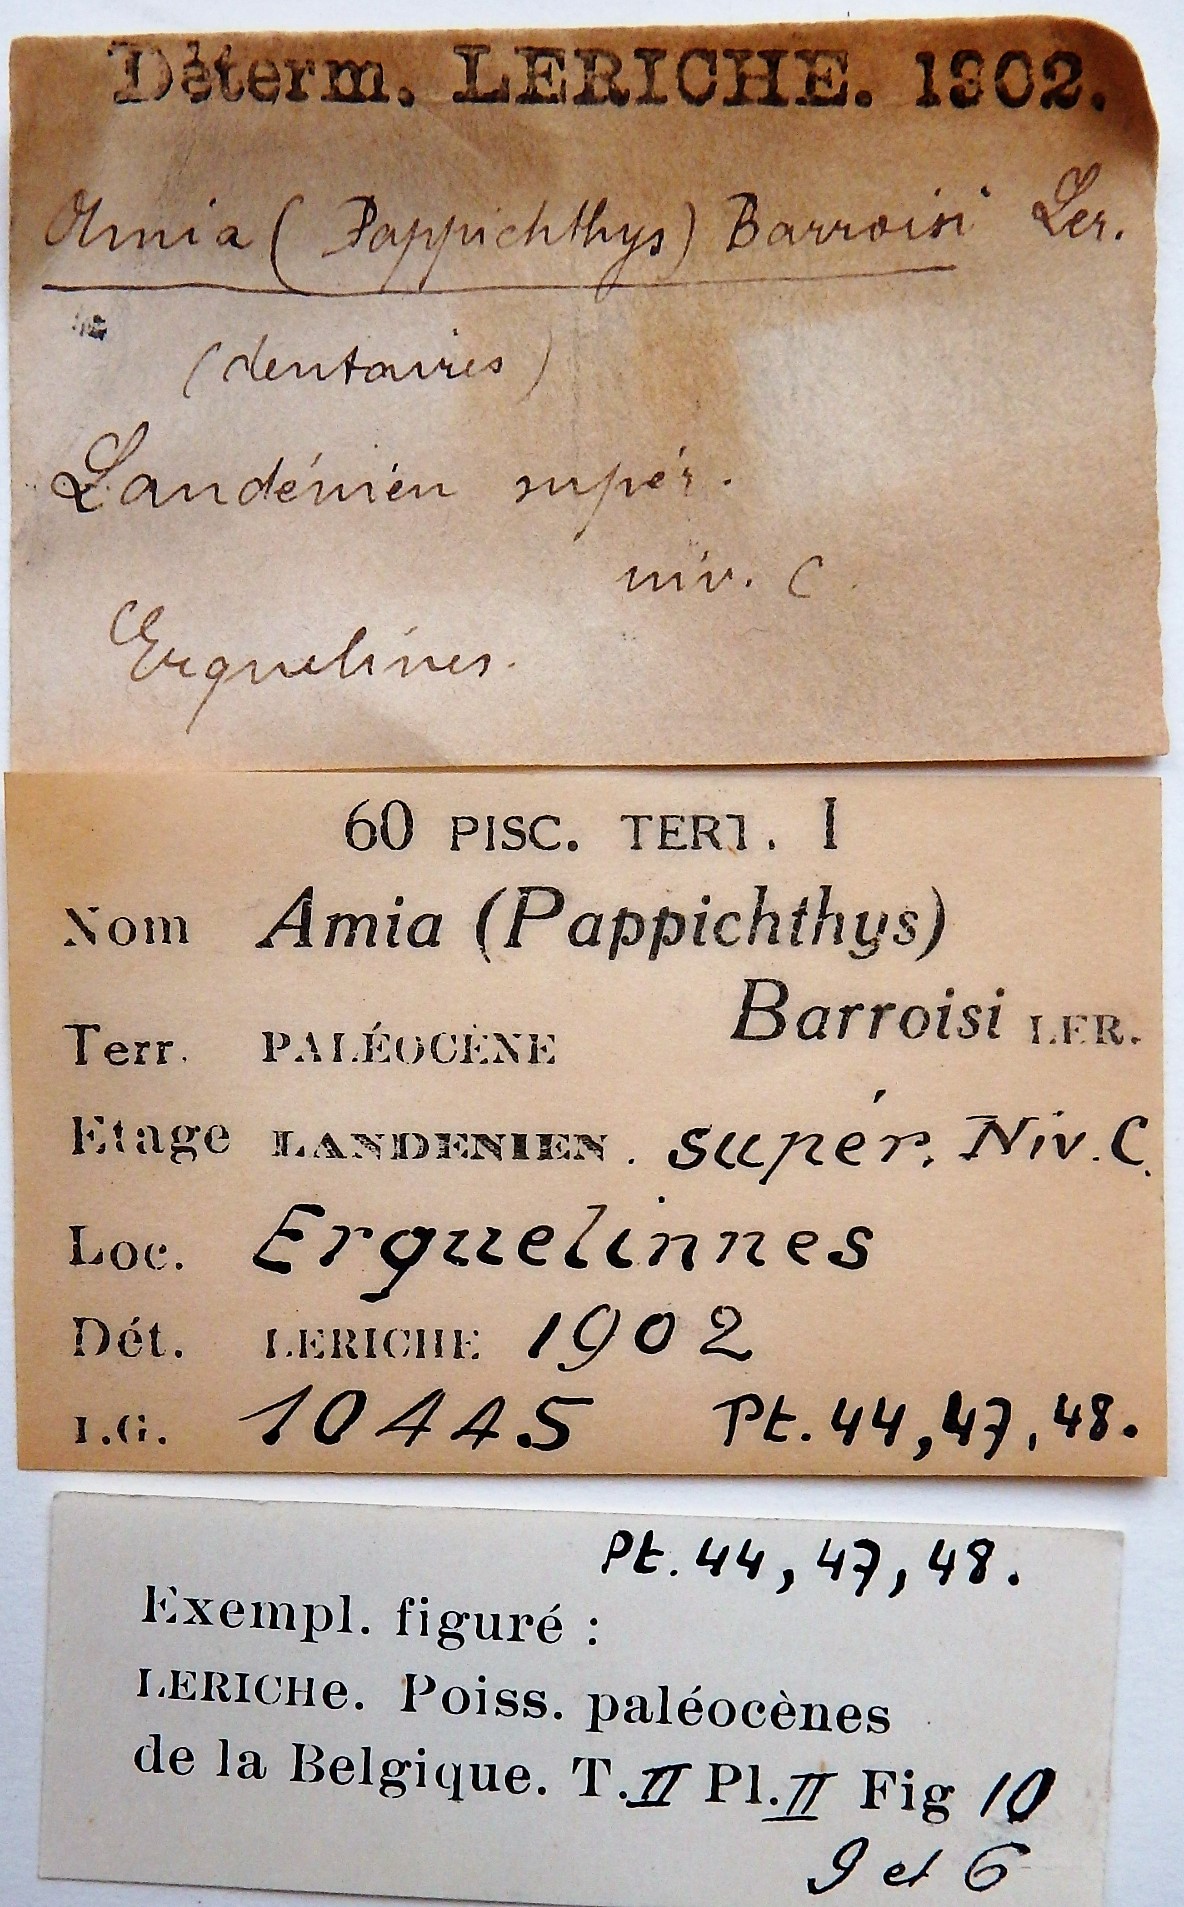 Déterm. LERICHE. 1902.
Amia (Pappichthys) Barroisi Ler.
(dentaires)
Landénién supér.
niv. C
Erquelines.
60 PISC. TERT. I
Nom Amia (Pappichthys)
Barroisi LER.
Terr. PALÉOCÈNE
Etage LANDENIEN. supér. Niv. C.
Loc. Erquelinnes
Dét. LERICHE 1902
I.G. 10445 Pt. 44, 47, 48.
Pt. 44, 47, 48.
Exempl. figuré :
LERICHe. Poiss. paléocènes
de la Belgique. T. II Pl. II Fig 10
9 et 6